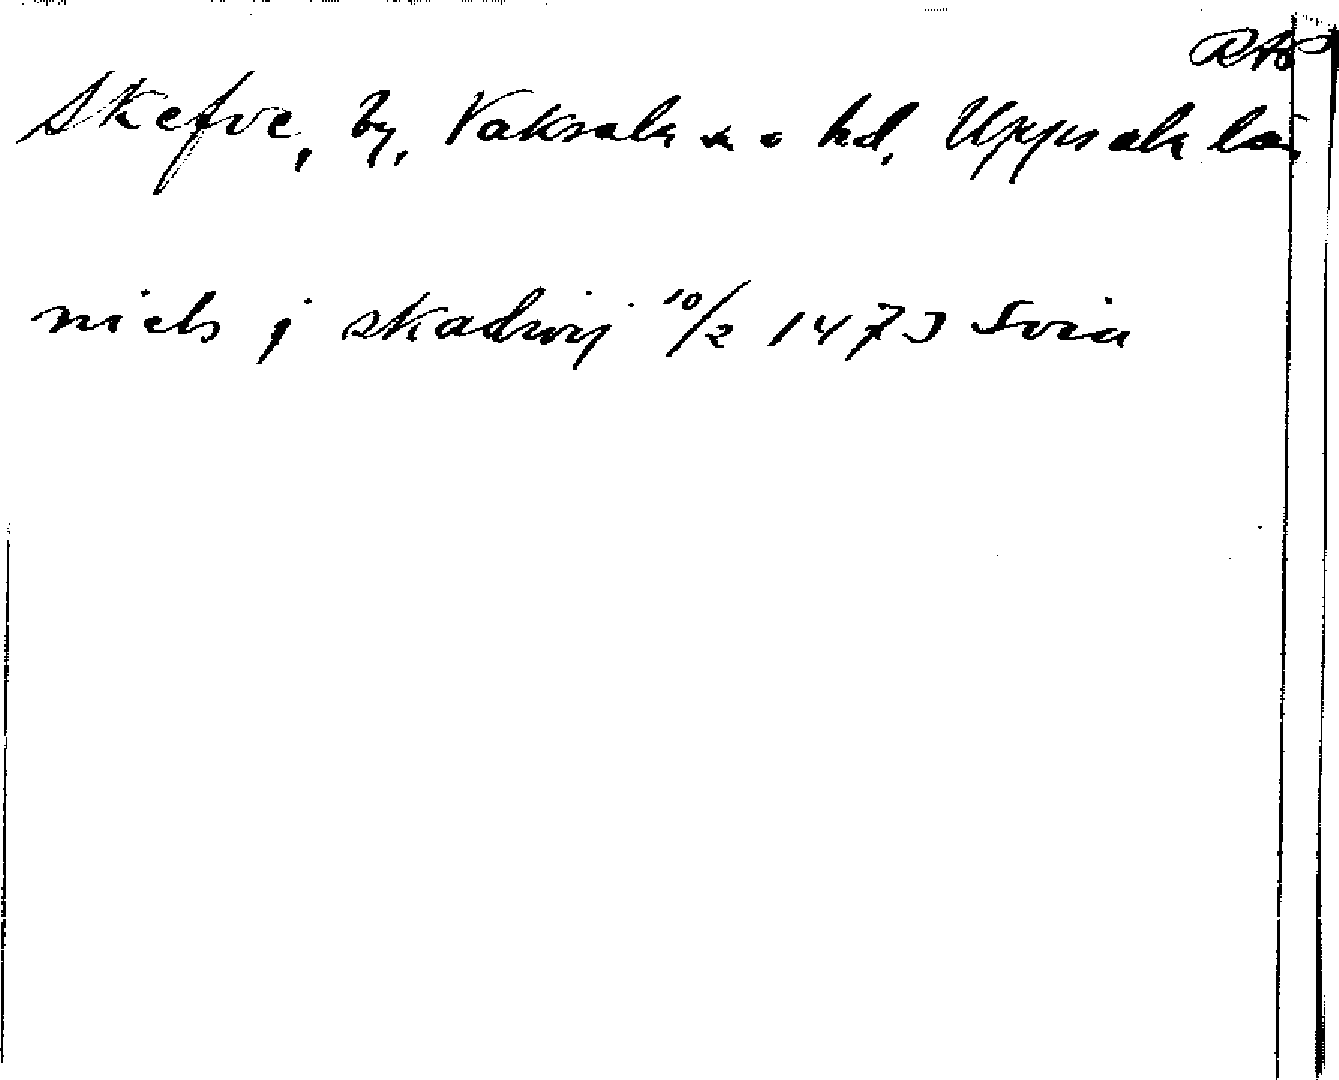 RAP
Skefve, by, Vaksala s. o. hd, Uppsala lä
niels j skadwij 10/2 1473 Svia